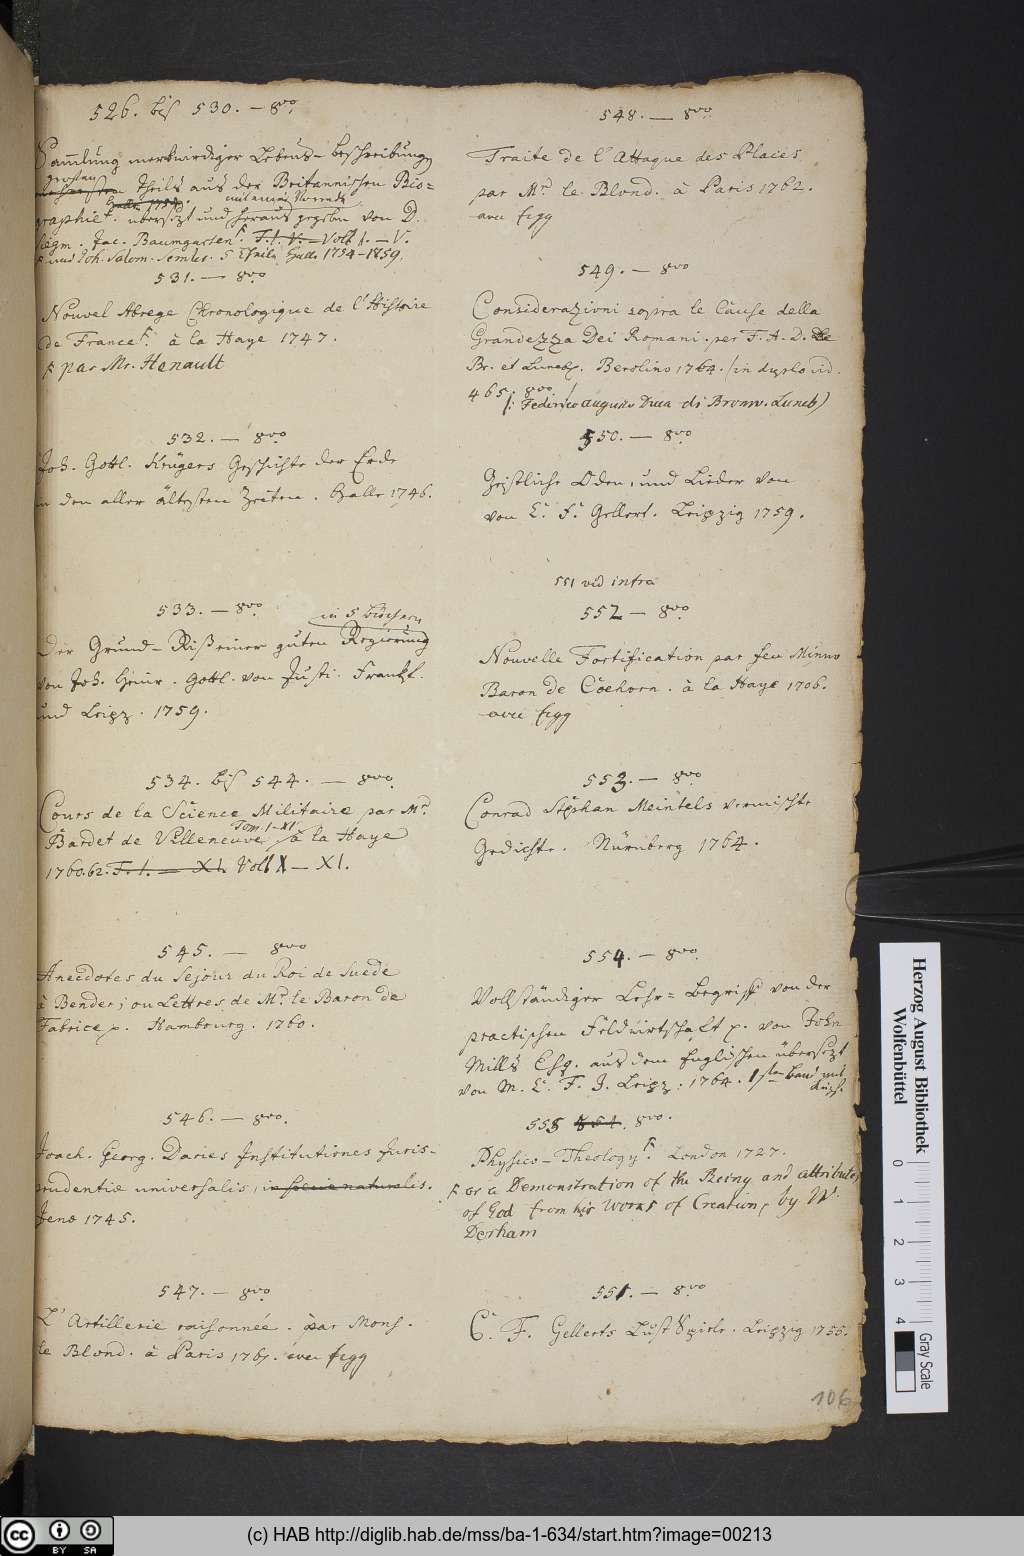 526. bis 530. — 8vo.
Sammlung merkwürdiger Lebens-Beschreibungen
grösten
Theils aus der Britannischen Bio=
Halle 1754. mit einer Vorrede
graphie übersezt und heraus gegeben von D.
Siegm. Jac. Baumgarten T. I. V. Voll I. — V.
und Joh. Salom. Semler. 5 Theile Halle 1754-1859.
531. — 8vo
Nouvel Abrege Chronologique de l'Histoire
de France. à la Haye 1747.
par Mr. Henault
532. — 8vo
Joh. Gottl. Krügers Geschichte der Erde
in den aller ältesten Zeiten. Halle 1746.
533. — 8vo
in 5 Büchern
Der Grund-Riß einer guten Regierung
von Joh. Heinr. Gottl. von Justi. Frankf.
und Leipz. 1759.
534. bis 544. — 8vo.
Cours de la Science Militaire par Mr
Tom. I-XI
Bardet de Villeneuve, à la Haye
1760.62. T. I. — XI. Voll I — XI.
545. — 8vo
Anecdotes du Sejour du Roi de Suede
à Bender; ou Lettres de Mr. le Baron de
Fabrice p. Hambourg. 1760.
546. — 8vo.
Joach. Georg. Daries Institutiones Juris-
prudentiæ universalis, in specie naturalis.
Jenæ 1745.
547. — 8vo
L'Artillerie raisonnée. par Mons.
le Blond. à Paris 1761. avec figg
548. — 8vo.
Traite de l'Attaque des Places
par Mr le Blond. à Paris 1762.
avec figg
549. — 8vo
Considerazioni sopra le Cause della
Grandezza Dei Romani. per F. A. D. de
Br. et Luneb. Berolino 1764. (in duplo vid.
465. 8vo.)
(: Federico Augusto Duca di Brunsv. Luneb)
550. — 8vo
Geistliche Oden, und Lieder von
von C. F. Gellert. Leipzig 1759.
551 vid infra
552 — 8vo.
Nouvelle Fortification par feu Minno
Baron de Coehorn. à la Haye 1706.
avec figg
553. — 8vo
Conrad Stephan Meintels vermischte
Gedichte. Nürnberg 1764.
554. — 8vo.
Vollständiger Lehr=Begriff von der
practischen Feldwirtschaft p. von John
Mills Esq. aus dem Englischen übersezt
von M. C. F. J. Leipz. 1764. 1ster Band mit
555 554. 8vo.
Physico-Theology. London 1727.
or a Demonstration of the Being and attributes
of God from his Works of Creation, by W.
Derham
551. — 8vo
C. F. Gellerts Lust Spiele. Leipzig 1755.
106
Herzog August Bibliothek
Wolfenbüttel
0 1 2 3 4
Gray Scale
cc BY SA
(c) HAB http://diglib.hab.de/mss/ba-1-634/start.htm?image=00213